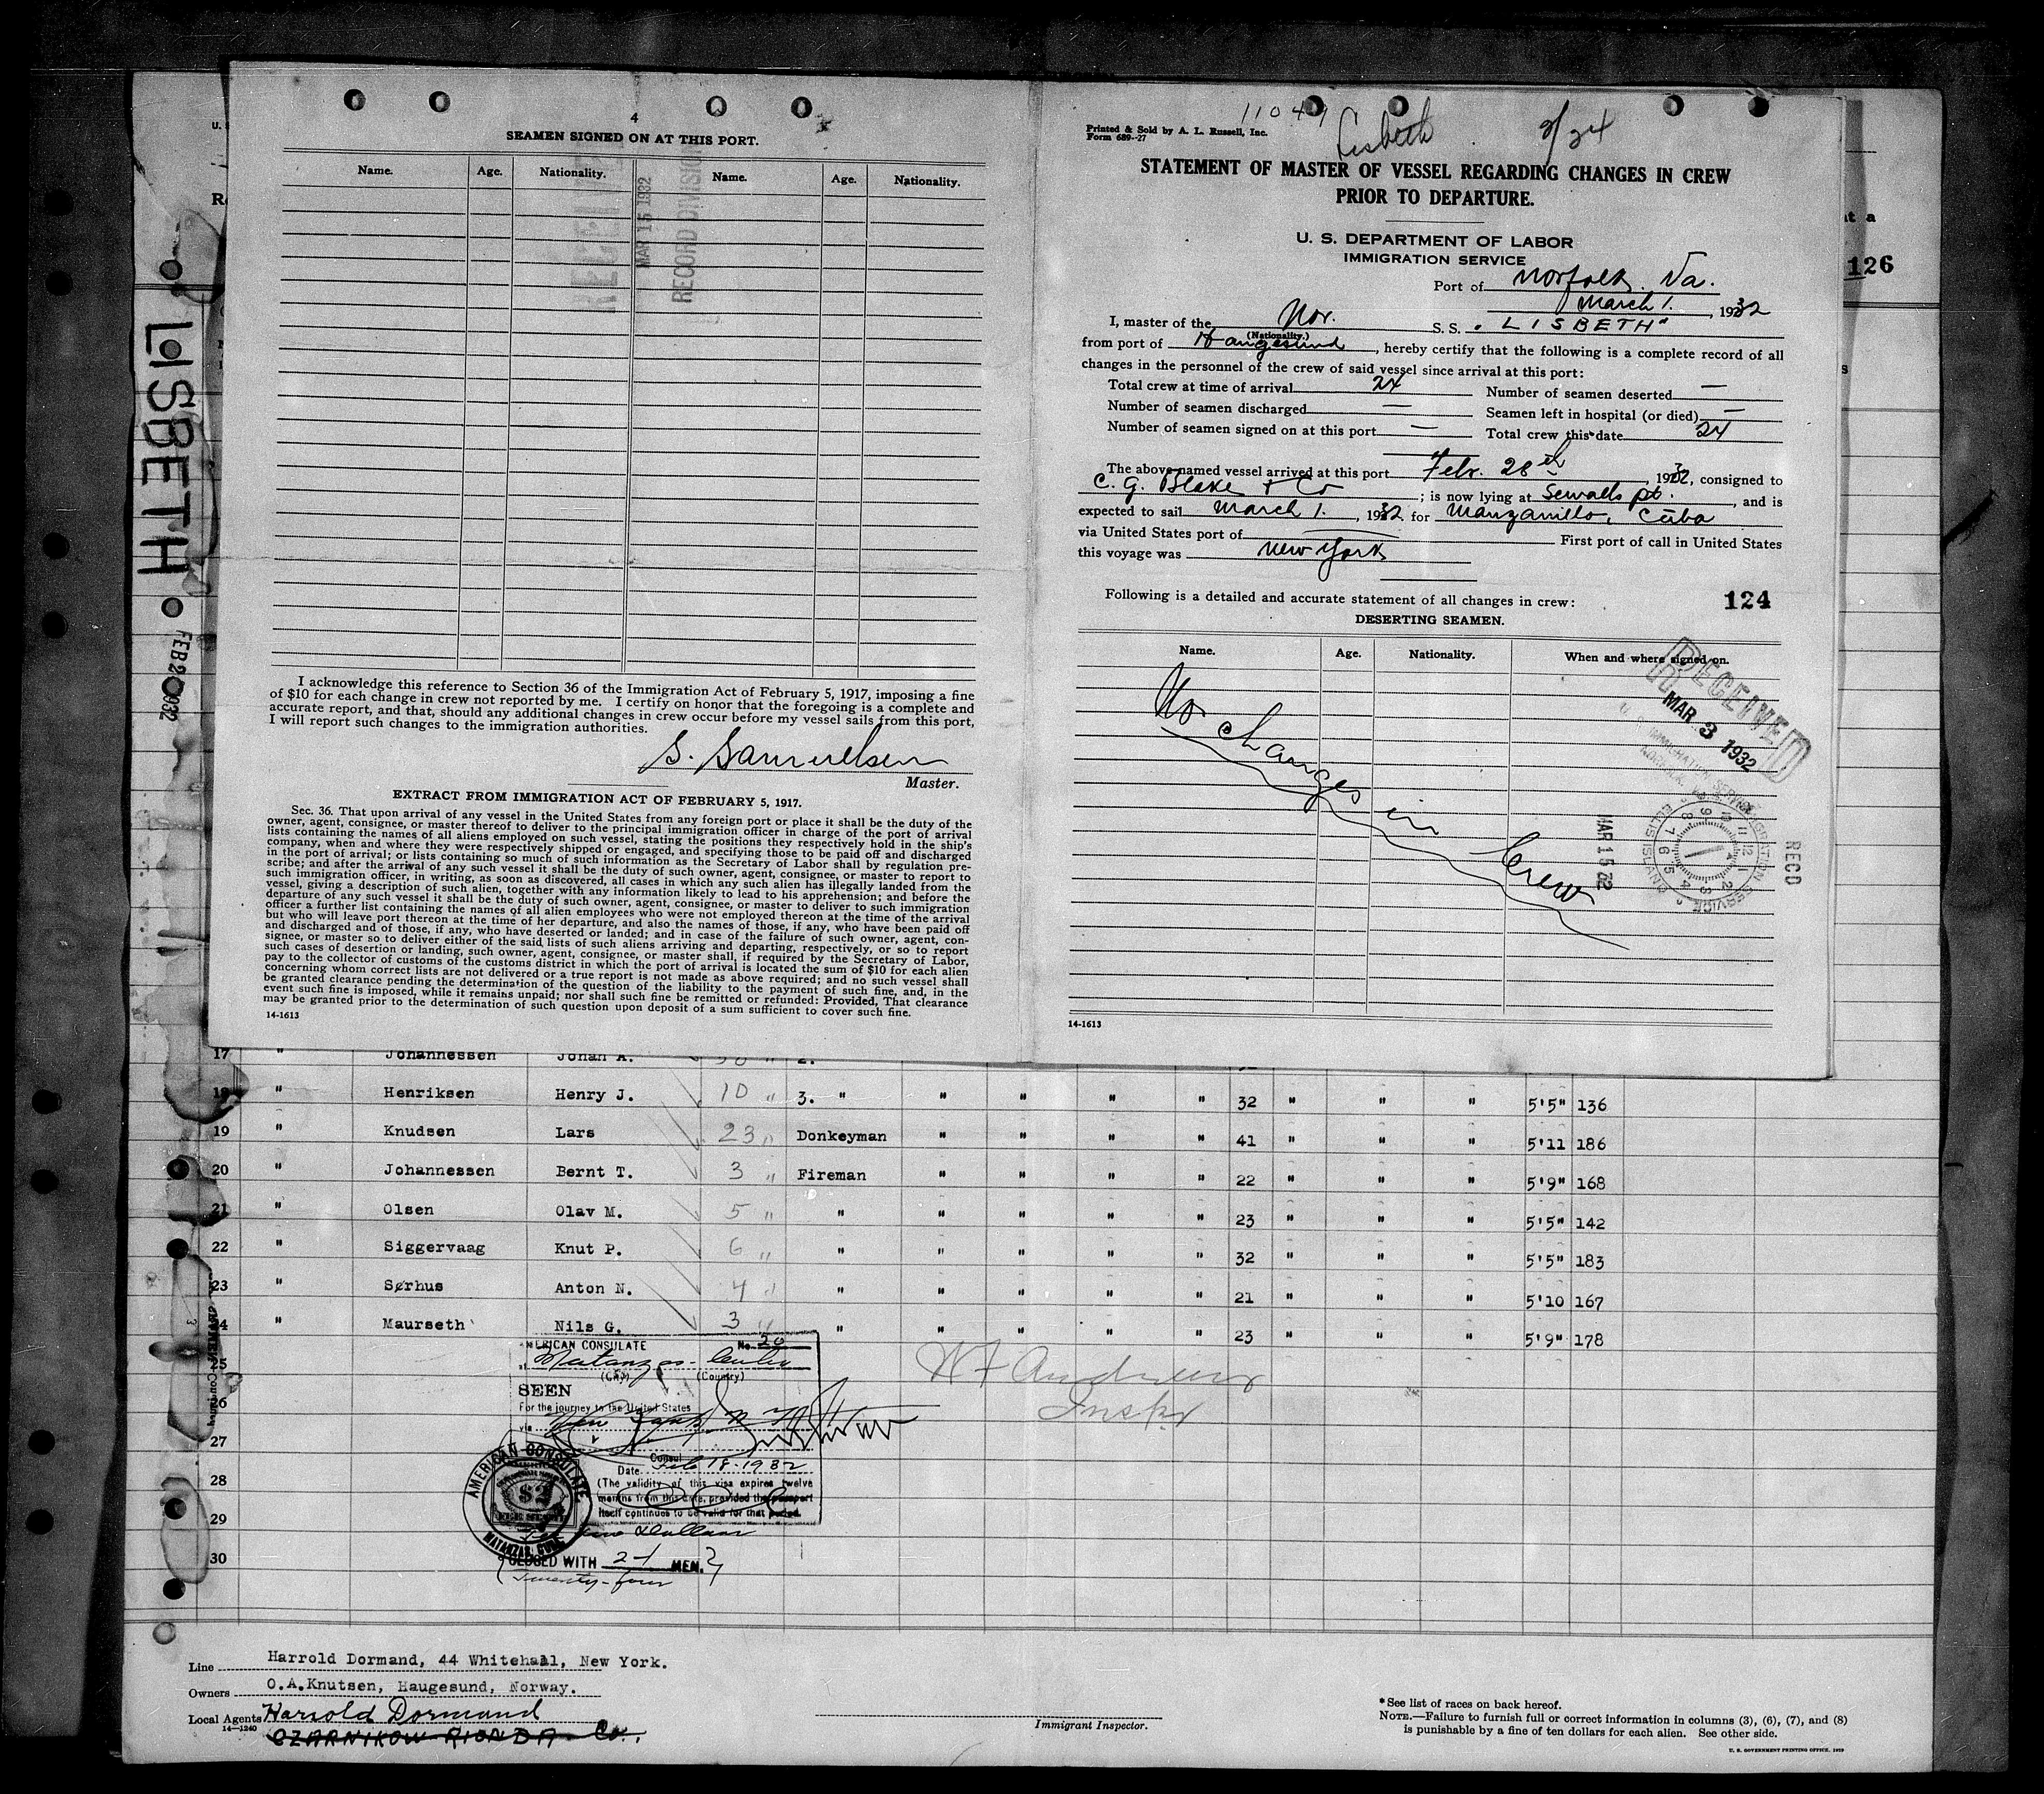 4
SEAMEN SIGNED ON AT THIS PORT.
Name. Age. Nationality. Name. Age. Nationality.
MAR 15 1932
RECORD DIVISION
I acknowledge this reference to Section 36 of the Immigration Act of February 5, 1917, imposing a fine
of $10 for each change in crew not reported by me. I certify on honor that the foregoing is a complete and
accurate report, and that, should any additional changes in crew occur before my vessel sails from this port,
I will report such changes to the immigration authorities.
S. Samuelsen
Master.
EXTRACT FROM IMMIGRATION ACT OF FEBRUARY 5, 1917.
Sec. 36. That upon arrival of any vessel in the United States from any foreign port or place it shall be the duty of the
owner, agent, consignee, or master thereof to deliver to the principal immigration officer in charge of the port of arrival
lists containing the names of all aliens employed on such vessel, stating the positions they respectively hold in the ship's
company, when and where they were respectively shipped or engaged, and specifying those to be paid off and discharged
in the port of arrival; or lists containing so much of such information as the Secretary of Labor shall by regulation pre-
scribe; and after the arrival of any such vessel it shall be the duty of such owner, agent, consignee, or master to report to
such immigration officer, in writing, as soon as discovered, all cases in which any such alien has illegally landed from the
vessel, giving a description of such alien, together with any information likely to lead to his apprehension; and before the
departure of any such vessel it shall be the duty of such owner, agent, consignee, or master to deliver to such immigration
officer a further list containing the names of all alien employees who were not employed thereon at the time of the arrival
but who will leave port thereon at the time of her departure, and also the names of those, if any, who have been paid off
and discharged and of those, if any, who have deserted or landed; and in case of the failure of such owner, agent, con-
signee, or master so to deliver either of the said lists of such aliens arriving and departing, respectively, or so to report
such cases of desertion or landing, such owner, agent, consignee, or master shall, if required by the Secretary of Labor,
pay to the collector of customs of the customs district in which the port of arrival is located the sum of $10 for each alien
concerning whom correct lists are not delivered or a true report is not made as above required; and no such vessel shall
be granted clearance pending the determination of the question of the liability to the payment of such fine, and, in the
event such fine is imposed, while it remains unpaid; nor shall such fine be remitted or refunded: Provided, That clearance
may be granted prior to the determination of such question upon deposit of a sum sufficient to cover such fine.
14-1613
11044 Lisbeth 9/24
Printed & Sold by A. L. Russell, Inc.
Form 689-27
STATEMENT OF MASTER OF VESSEL REGARDING CHANGES IN CREW
PRIOR TO DEPARTURE.
U. S. DEPARTMENT OF LABOR
IMMIGRATION SERVICE
Port of Norfolk. Va.
March 1. , 1932
I, master of the Nor. S.S. "LISBETH"
(Nationality.)
from port of Haugesund, hereby certify that the following is a complete record of all
changes in the personnel of the crew of said vessel since arrival at this port:
Total crew at time of arrival 24 Number of seamen deserted —
Number of seamen discharged — Seamen left in hospital (or died) —
Number of seamen signed on at this port — Total crew this date 24
The above-named vessel arrived at this port Febr. 28th, 1932, consigned to
C. G. Blake & Co ; is now lying at Sewalls pt. , and is
expected to sail March 1. , 1932. for Manzanillo, Cuba
via United States port of — First port of call in United States
this voyage was New York
Following is a detailed and accurate statement of all changes in crew: 124
DESERTING SEAMEN.
Name. Age. Nationality. When and where signed on.
No changes in Crew
RECEIVED
MAR 3 1932
MAR 15 32
RECD
14-1613
126
LISBETH
17 " Johannessen Johan A. 2.
18 " Henriksen Henry J. 10 " 3. " " " " " 32 " " " 5'5" 136
19 " Knudsen Lars 23 " Donkeyman " " " " 41 " " " 5'11 186
20 " Johannessen Bernt T. 3 " Fireman " " " " 22 " " " 5'9" 168
21 " Olsen Olav M. 5 " " " " " " 23 " " " 5'5" 142
22 " Siggervaag Knut P. 6 " " " " " " 32 " " " 5'5" 183
23 " Sørhus Anton N. 4 " " " " " " 21 " " " 5'10 167
24 " Maurseth Nils G. 3 " " " " " " 23 " " " 5'9" 178
25
26
27
28
29
30
AMERICAN CONSULATE No. 20
Matanzas - Cuba
(City) (Country)
SEEN
For the journey to the United States
via New York
Consul
Date Feb 18-1932
(The validity of this visa expires twelve
months from this date, provided the passport
itself continues to be valid for that period.
AMERICAN CONSULATE
MATANZAS, CUBA
$2
CLOSED WITH 24 MEN.
Twenty-four
W F Andrews
Inspr
Line Harrold Dormand, 44 Whitehall, New York.
Owners O.A.Knutsen, Haugesund, Norway.
Local Agents Harrold Dormand
14-1240
CZARNIKOW RIONDA Co.
Immigrant Inspector.
*See list of races on back hereof.
NOTE.—Failure to furnish full or correct information in columns (3), (6), (7), and (8)
is punishable by a fine of ten dollars for each alien. See other side.
U. S. GOVERNMENT PRINTING OFFICE. 1929